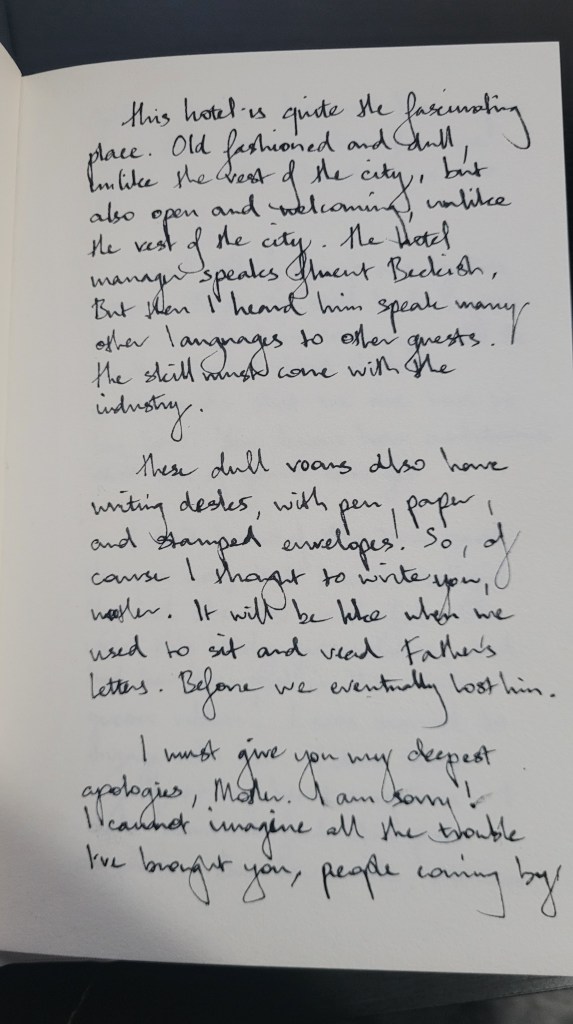 This hotel is quite the fascinating
place. Old fashioned and dull,
unlike the rest of the city, but
also open and welcoming, unlike
the rest of the city. The hotel
manager speaks fluent Beckish,
But then I heard him speak many
other languages to other guests.
The skill must come with the
industry.
These dull rooms also have
writing desks, with pen, paper,
and stamped envelopes! So, of
course I thought to write you,
mother. It will be like when we
used to sit and read Father's
letters. Before we eventually lost him.
I must give you my deepest
apologies, Mother. I am sorry!
I cannot imagine all the trouble
I've brought you, people coming by